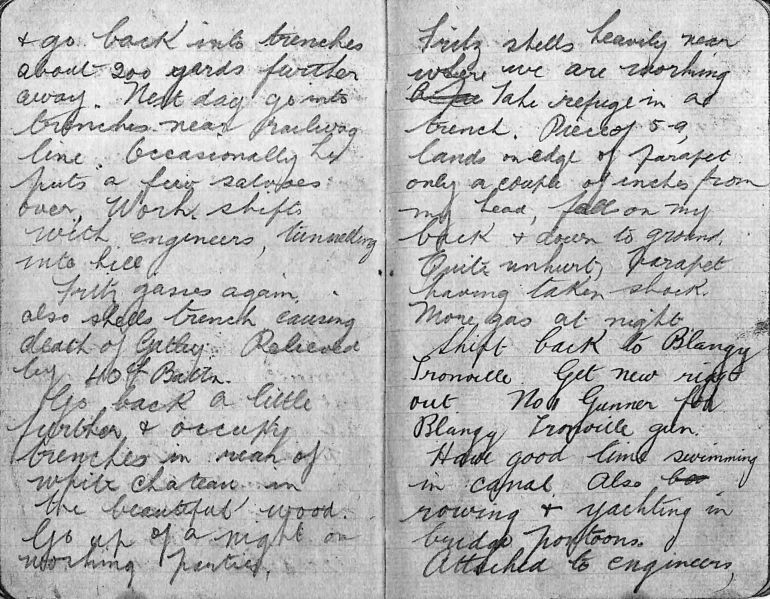 + go back into trenches
about 200 yards further
away. Next day go into
trenches near railway
line. Occasionally he
puts a few salvoes
over. Work shifts
with engineers, tunnelling
into hill
Fritz gasses again,
also shells trench causing
death of Cathay. Relieved
by 40th Battn.
Go back a little
further & occupy
trenches in rear of
white chateau in
the beautiful wood.
Go up of a night on
working parties,
Fritz shells heavily near
where we are working
Take refuge in a
trench. Piece of 5.9
lands on edge of parapet
only a couple of inches from
my head, fall on my
back + down to ground.
Quite unhurt, parapet
having taken shock.
More gas at night
Shift back to Blangy
Tronville. Get new rig
out. No 1 Gunner for
Blangy Tronville gun.
Have good time swimming
in canal. Also
rowing & yachting in
bridge pontoons.
Attached to engineers,